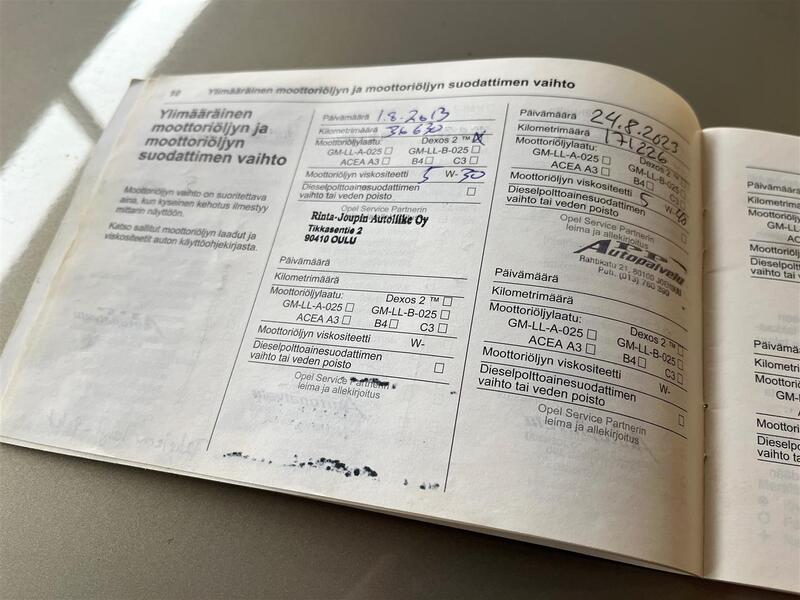 10 Ylimääräinen moottoriöljyn ja moottoriöljyn suodattimen vaihto
Ylimääräinen
moottoriöljyn ja
moottoriöljyn
suodattimen vaihto
Moottoriöljyn vaihto on suoritettava
aina, kun kyseinen kehotus ilmestyy
mittarin näyttöön.
Katso sallitut moottoriöljyn laadut ja
viskositeetit auton käyttöohjekirjasta.
Päivämäärä 1.8.2013
Kilometrimäärä 36630
Moottoriöljylaatu: Dexos 2 ™ ☒
GM-LL-A-025 ☐ GM-LL-B-025 ☐
ACEA A3 ☐ B4 ☐ C3 ☐
Moottoriöljyn viskositeetti 5 W-30
Dieselpolttoainesuodattimen
vaihto tai veden poisto ☐
Opel Service Partnerin
Rinta-Joupin Autoliike Oy
Tikkasentie 2
90410 OULU
Päivämäärä
Kilometrimäärä
Moottoriöljylaatu: Dexos 2 ™ ☐
GM-LL-A-025 ☐ GM-LL-B-025 ☐
ACEA A3 ☐ B4 ☐ C3 ☐
Moottoriöljyn viskositeetti W-
Dieselpolttoainesuodattimen
vaihto tai veden poisto ☐
Opel Service Partnerin
leima ja allekirjoitus
Päivämäärä 24.8.2023
Kilometrimäärä 171226
Moottoriöljylaatu: Dexos 2 ™
GM-LL-A-025 ☐ GM-LL-B-025 ☐
ACEA A3 ☐ B4 ☐ C3 ☐
Moottoriöljyn viskositeetti 5 W-
Dieselpolttoainesuodattimen
vaihto tai veden poisto ☐
Opel Service Partnerin
leima ja allekirjoitus
Autopalvelu
Rahtikatu 21, 80100 JOENSUU
Puh. (013)
Päivämäärä
Kilometrimäärä
Moottoriöljylaatu: Dexos 2 ™ ☐
GM-LL-A-025 ☐ GM-LL-B-025 ☐
ACEA A3 ☐ B4 ☐ C3 ☐
Moottoriöljyn viskositeetti W-
Dieselpolttoainesuodattimen
vaihto tai veden poisto ☐
Opel Service Partnerin
leima ja allekirjoitus
Päivämäärä
Kilometrimäärä
GM-LL
Dieselpolttoaine
vaihto tai veden
Kilometrimäärä
GM-LL
Dieselpolttoa
vaihto tai ve